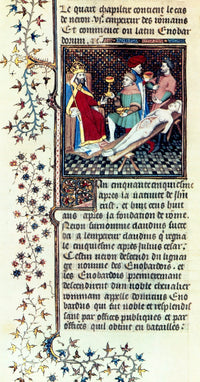 Le quart chapistre contient le cas
de neron .vi.e empereur des rommains
Et commence ou latin Enobar
dorum &c.
An cinquantecinquiesme
apres la nativite de ihu
crist . et huit cens huit
ans apres la fondation de romme.
Neron surnomme claudius succe
da a lempereur claudius qui regna
le cinquiesme apres Julius cesar.
Cestui neron descendi du lignage
nomme des Enobardois.
les Enobardois prenneient
descendirent dun noble chevalier
rommain appelle domicius Eno
bardus qui fut noble et resplendis
sant par offices publiques et par
offices quil obtint en batailles.